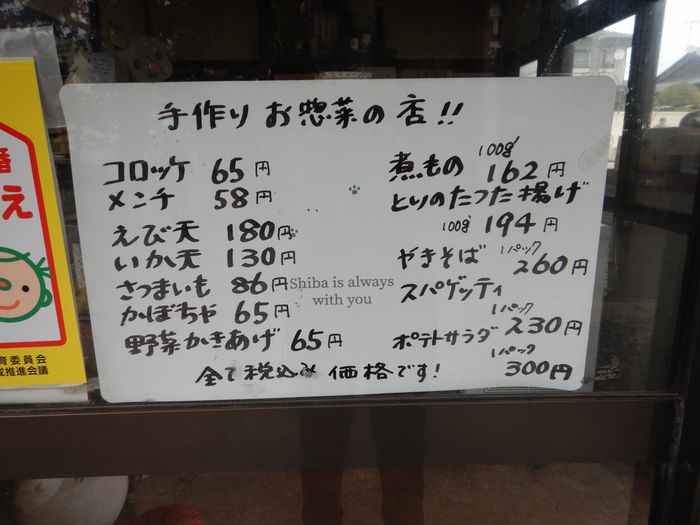 手作り お惣菜の店!!
コロッケ 65円
メンチ 58円
えび天 180円
いか天 130円
さつまいも 86円
かぼちゃ 65円
野菜かきあげ 65円
煮もの 100g 162円
とりのたつた揚げ
100g 194円
やきそば 1パック 260円
スパゲッティ
1パック 230円
ポテトサラダ
1パック 300円
全て税込み価格です!
Shiba is always
with you
え
育委員会
成推進会議